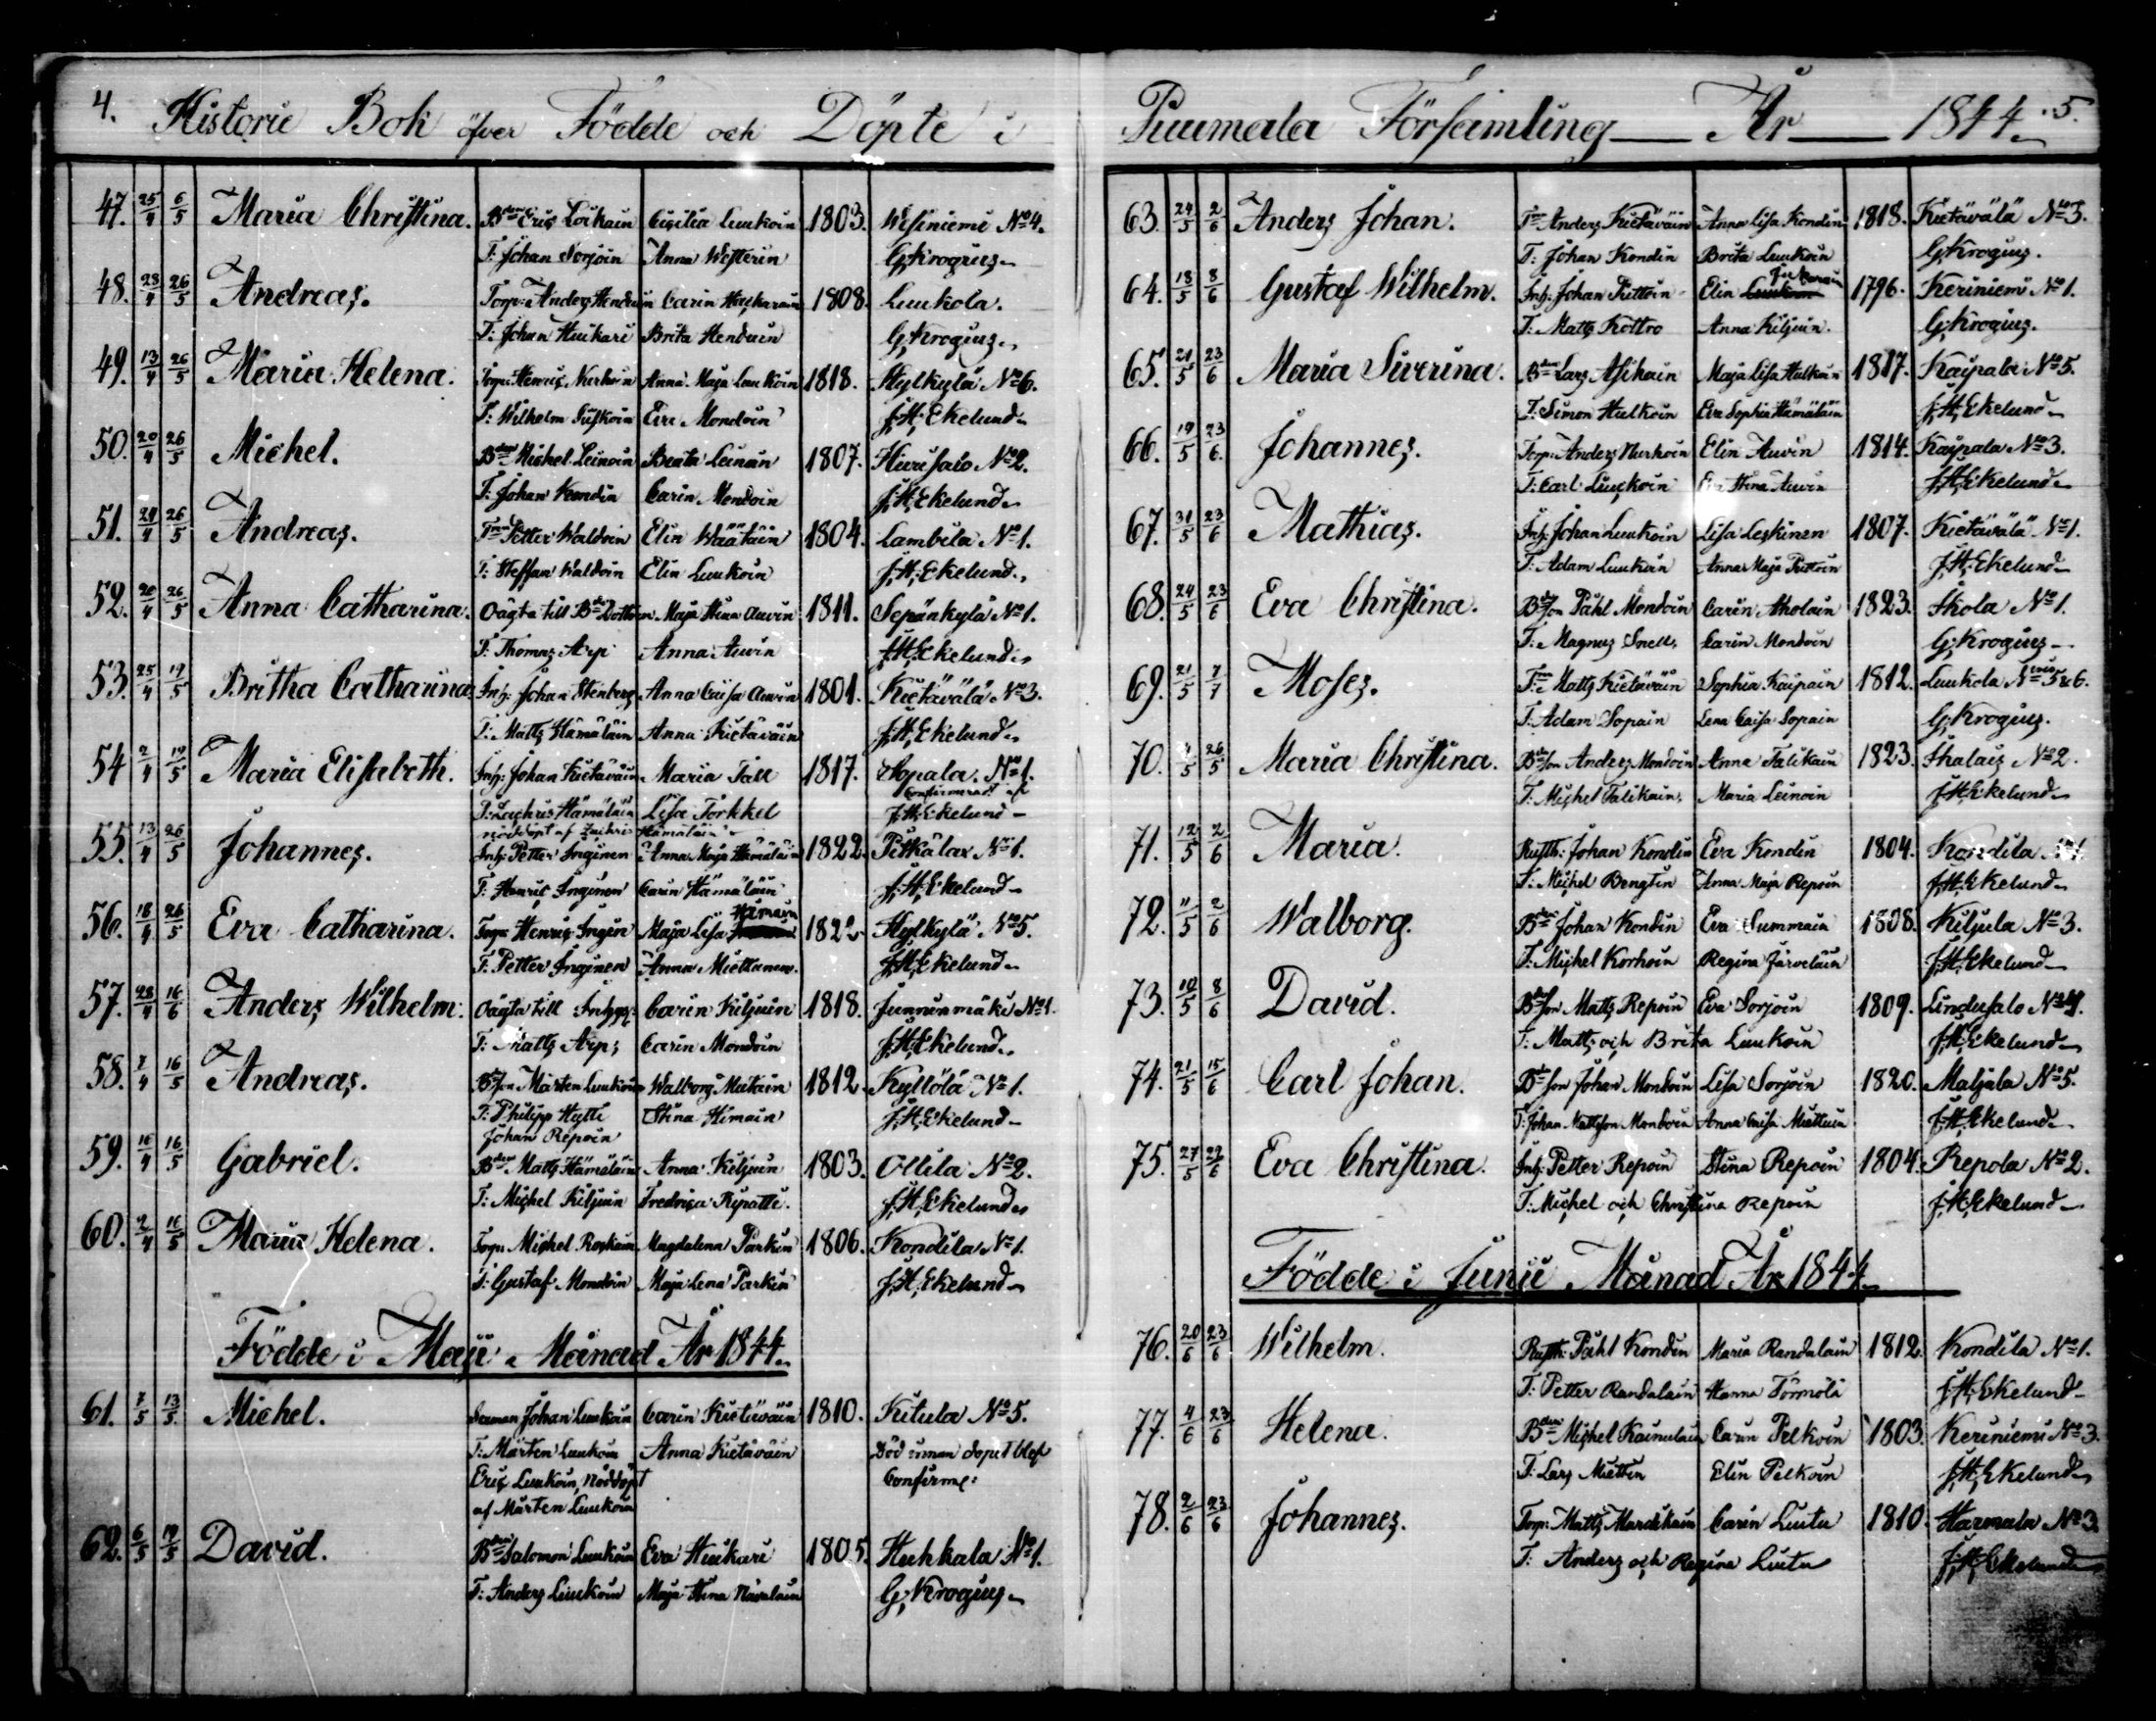 4. Historie Bok öfver Födde och Döpte i
47. 25/4 6/5 Maria Christina. Bden Eric Loikain Cicilia Luukoin 1803. Wesiniemi No 4.
T: Johan Sorjoin Anna Westerin G. Krogius
48. 23/4 26/5 Andreas. Torp: Anders Henduin Carin Haikarain 1808. Luukola.
T: Johan Huikari Brita Henduin G. Krogius
49. 13/4 26/5 Maria Helena. Torp: Henric Nurhoin Anna Maja Luukoin 1818. Hylkylä No 6.
T: Wilhelm Eva Mondoin J.H. Ekelund
50. 20/4 26/5 Michel. Bden Michel Leinoin Beata Leinoin 1807. Hirisalo No 2.
T: Johan Kondin Carin Mondoin J.H. Ekelund
51. 24/4 26/5 Andreas. Petter Waldoin Elin Wäätäin 1804. Lambila No 1.
T: Steffan Waldoin Elin Luukoin J.H. Ekelund
52. 20/4 26/5 Anna Catharina. Oägta till Bde Dottren Maja Stina Auvin 1811. Sepänkylä No 1.
T: Thomas Arp Anna Auvin J.H. Ekelund
53. 25/4 19/5 Britha Catharina Inh: Johan Stenberg Anna Caisa Auvin 1801. Kietävälä No 3.
T: Matts Hämäläin Anna Kietäväin J.H. Ekelund
54 2/4 19/5 Maria Elisabeth. Inh: Johan Kietäväin Maria Tall 1817. Sopala No 1.
Confirmerad af
T: Zachris Hämäläin Lisa Torkkel J.H. Ekelund
nöddöpt af Zachris Hämäläin
55. 13/4 26/5 Johannes. Inh: Petter Inginen Anna Maja Hämäläin 1822. Pitkälax No 1.
T: Henric Inginen Carin Hämäläin J.H. Ekelund
56. 18/4 26/5 Eva Catharina. Torp: Henric Ingin Maja Lisa Himain 1822 Hylkylä No 5.
T: Petter Inginen Anna Miettanen. J.H. Ekelund
57. 28/4 16/6 Anders Wilhelm. Oägta till Carin Kiljuin 1818. Junninmäki No 1.
T: Matts Arp; Carin Mondoin J.H. Ekelund
58. 7/4 16/5 Andreas. Bdeson Mårten Luukoin Walborg Matain 1812. Kyllölä No 1.
T: Philipp Hytti Stina Himain J.H. Ekelund
Johan Repoin
59. 16/4 16/5 Gabriel. Bden Matts Hämäläin Anna Kiljuin 1803. Ollila No 2.
T: Michel Kiljuin Fredrica Ripatti. J.H. Ekelund
60. 2/4 16/5 Maria Helena. Torp: Michel Roskain Magdalena Parkin 1806. Kondila No 1.
T: Gustaf Mondoin Maja Lena Parkin J.H. Ekelund
Födde i Maji Månad År 1844.
61. 7/5 13/5 Michel. Johan Luukoin Carin Kietäväin 1810. Kitula No 5.
T: Mårten Luukoin Anna Kietäväin Död innan dopet blef
Eric Luukoin, Nöddöpt Confirme:
af Mårten Luukoin
62. 6/5 19/5 David. Bden Salomon Luukoin Eva Huikari 1805. Huhkala No 1.
T: Anders Luukoin Maja Stina G. Krogius
Puumala Församling År 1844. 5.
63. 24/5 2/6 Anders Johan. Anders Kietäväin Anna Lisa Kondin 1818. Kietävälä No 3.
T: Johan Kondin Brita Luukoin G. Krogius.
64. 18/5 8/6 Gustaf Wilhelm. Inh: Johan Puttoin Elin 1796. Keriniemi No 1.
T: Matts Kottro Anna Kiljuin. G. Krogius.
65. 21/5 23/6 Maria Siverina. Bden Lars Asikain Maja Lisa Hulkoin 1817. Kaipala No 5.
T: Simon Hulkoin Eva Sophia Hämäläin J.H. Ekelund
66. 19/5 23/6. Johannes. Torp: Anders Nurhoin Elin Auvin 1814. Kaipala No 3.
T: Carl Luukoin Eva Stina Auvin J.H. Ekelund
67. 31/5 23/6 Mathias. Inh: Johan Luukoin Lisa Leskinen 1807. Kietävälä No 1.
T: Adam Luukoin Anna Maja Puttoin J.H. Ekelund
68. 24/5 23/6 Eva Christina. Bdeson Påhl Mondoin Carin Aholain 1823. Skola No 1.
T: Magnus Snell Carin Mondoin G. Krogius
69. 21/5 7/7 Moses. Matts Kietäväin Sophia Kaipain 1812. Luukola No 5 & 6.
T: Adam Sopain Lena Caisa Sopain G. Krogius.
70. 4/5 26/5 Maria Christina. Bdeson Anders Mondoin Anna Talikain 1823. Ihalais No 2.
T: Michel Talikain Maria Leinoin J.H. Ekelund
71. 12/5 2/6 Maria. Rusth: Johan Kondin Eva Kondin 1804. Kondila No 1.
T: Michel Bengtin Anna Maja Repoin J.H. Ekelund
72. 11/5 2/6 Walborg. Bden Johan Kondin Eva Summain 1808. Kiljula No 3.
T: Michel Korhoin Regina Järveläin J.H. Ekelund
73. 10/5 8/6 David. Bdeson Matts Repoin Eva Sorjoin 1809. Lindusalo No 4.
T: Matts och Brita Luukoin J.H. Ekelund
74. 21/5 15/6 Carl Johan. Bdeson Johan Mondoin Lisa Sorjoin 1820. Maljala No 5.
T: Johan Mattsson Mondoin Anna Caisa Miettuin J.H. Ekelund
75. 27/5 29/6 Eva Christina. Inh: Petter Repoin Stina Repoin 1804. Repola No 2.
T: Michel och Christina Repoin J.H. Ekelund
Födde i Junii Månad År 1844
76. 20/6 23/6 Wilhelm. Rusth: Påhl Kondin Maria Randalain 1812. Kondila No 1.
T: Petter Randalain Hanna Törmälä J.H. Ekelund
77. 4/6 23/6 Helena. Bden Michel Kainulain Carin Pelkoin 1803. Keriniemi No 3.
T: Lars Miettin Elin Pelkoin J.H. Ekelund
78. 2/6 23/6 Johannes. Torp: Matts Mardikain Carin Luitu 1810. Harmala No 3.
T: Anders och Regina Luitu J.H. Ekelund